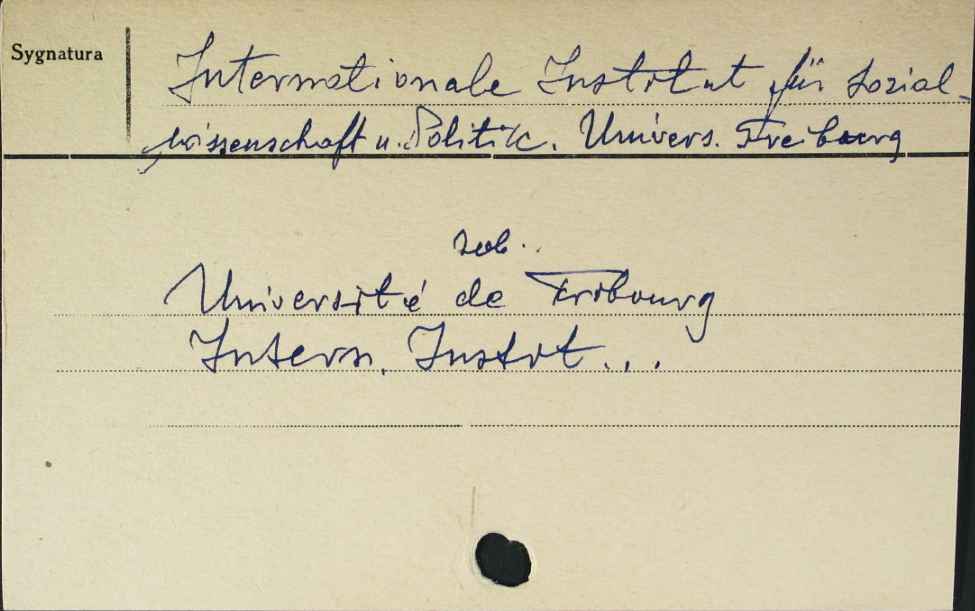 Sygnatura
Internationale Institut für Sozial-
wissenschaft u. Politik. Univers. Freiburg
zob..
Université de Fribourg
Intern. Instit...